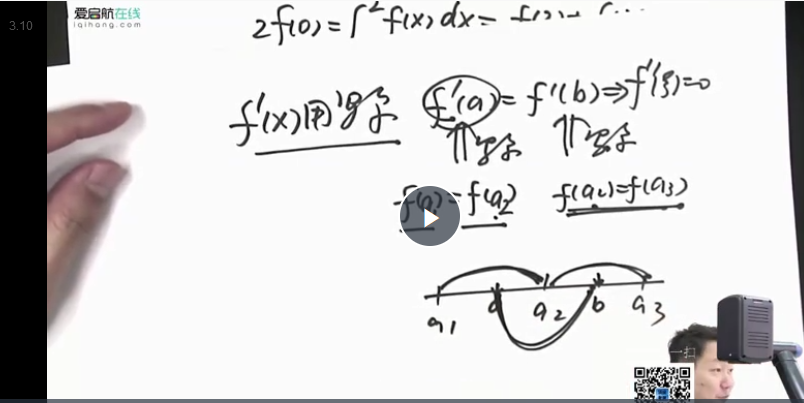 3.10
爱启航在线
iqihang.com
2f(0)=∫²f(x)dx=
f'(x)用罗尔 f'(a)=f'(b)⇒f''(ξ)=0
⇑罗尔 ⇑罗尔
f(a₁)=f(a₂) f(a₂)=f(a₃)
a₁ a a₂ b a₃
一扫